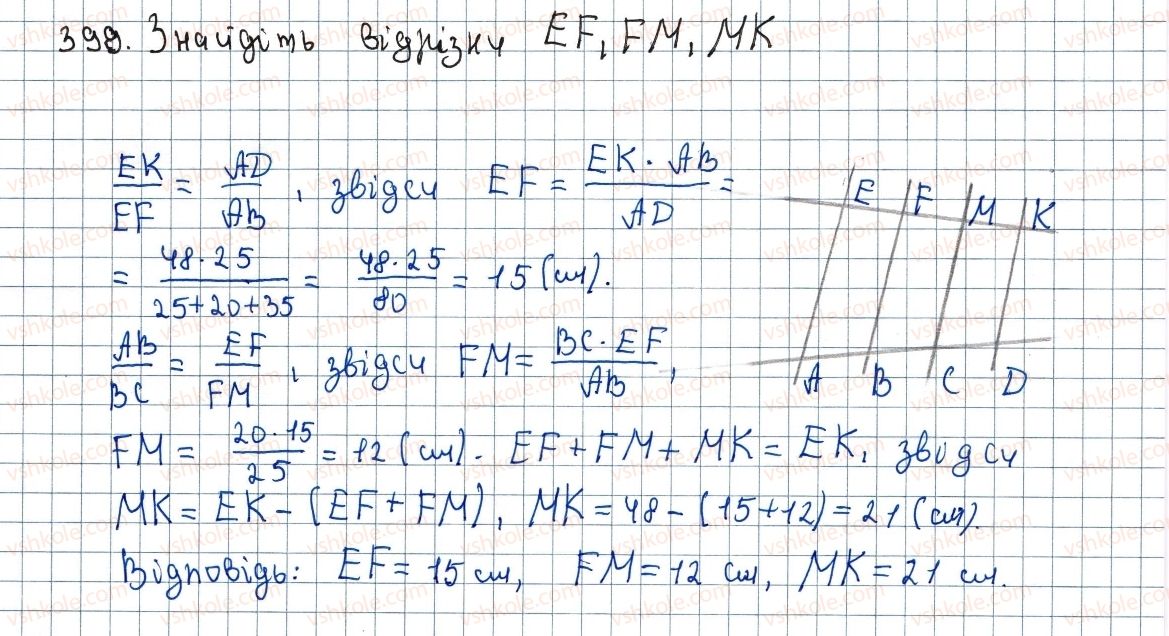 399. Знайдіть відрізки EF, FM, MK
EK/EF = AD/AB, звідси EF = (EK · AB)/AD =
= (48 · 25)/(25+20+35) = (48 · 25)/80 = 15 (см).
AB/BC = EF/FM, звідси FM = (BC · EF)/AB,
FM = (20 · 15)/25 = 12 (см). EF + FM + MK = EK, звідси
MK = EK - (EF + FM), MK = 48 - (15+12) = 21 (см).
Відповідь: EF = 15 см, FM = 12 см, MK = 21 см.
E F M K
A B C D
vshkole.com